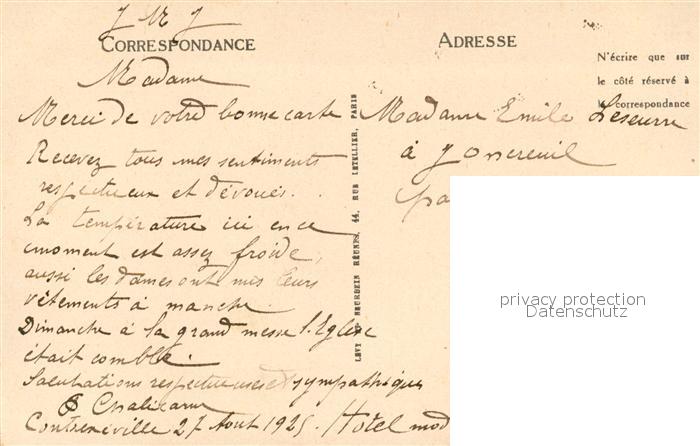 J M J
CORRESPONDANCE
Madame
Merci de votre bonne carte
Recevez tous mes sentiments
respectueux et dévoués.
La température ici en ce
moment est assez froide,
aussi les dames ont mis leurs
vêtements à manche.
Dimanche à la grand messe l'Eglise
était comble.
Salutations respectueuses et sympathiques
Contrexéville 27 Août 1925 Hôtel mod
LEVY ET NEURDEIN RÉUNIS, 44, RUE LETELLIER, PARIS
ADRESSE
N'écrire que sur
le côté réservé à
la correspondance
Madame Emile Leseurre
à Joncreuil
pa
privacy protection
Datenschutz